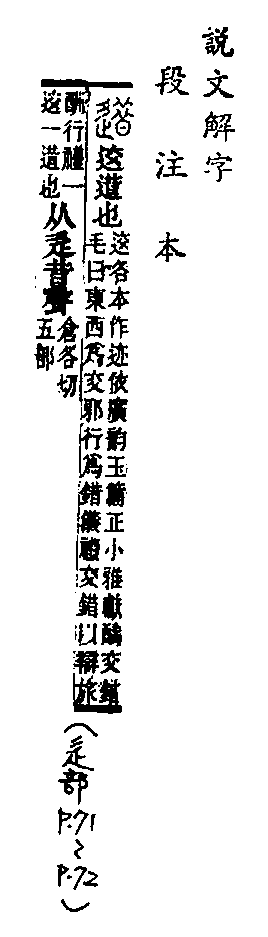 說文解字
段注本
逪 䢒逪也
䢒各本作迹依廣韵玉篇正小雅獻醻交錯
毛曰東西爲交邪行爲錯儀禮交錯以辯旅
酬行禮一
䢒一逪也
从辵昔聲
倉各切
五部
(辵部 P.71~P.72)